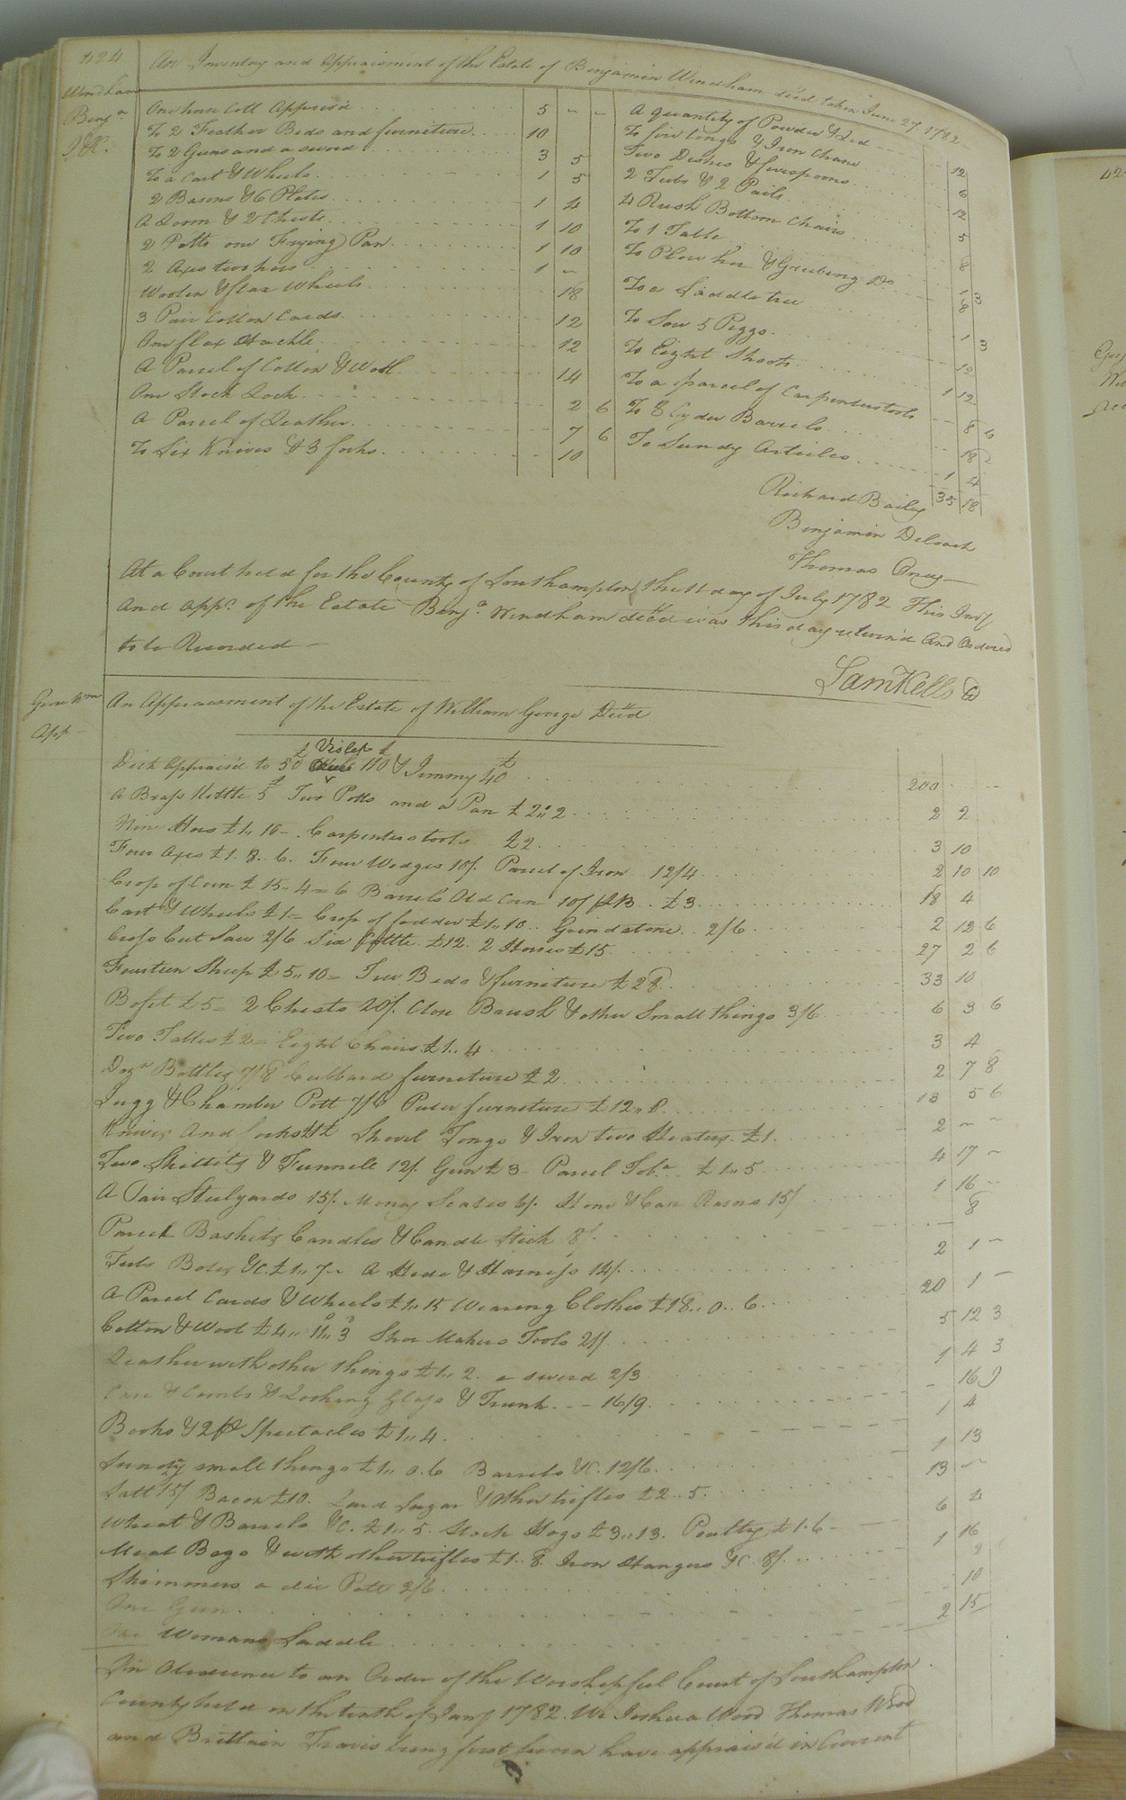 424
An Inventory and Appraisment of the Estate of Benjamin Windham dec'd taken June 27 1782
Windham
Benja
I &c.
One horse Colt Appraisd 5 - -
To 2 Feather Beds and furniture 10
To 2 Guns and a sword 3 5
To a Cart & Wheels 1 5
2 Basons & 6 Plates 1 4
A Loom & 2 Chests 1 10
2 Potts one Frying Pan 1 10
2 Axes two hoes 1 -
Woolen & flax Wheels 18
3 Pair Cotton Cards 12
One flax Hackle 12
A Parcel of Cotton & Wool 14
One Stock Lock 2 6
A Parcel of Leather 7 6
To Six Knives & 3 forks 10
A quantity of Powder & Led 12
To fire tongs & Iron Chane 6
Two Dishes & spoons 12
2 Tubs & 2 Pails 5
4 Rush Bottom Chairs 8
To 1 Table 1 3
To Plow hoe & Grubing Do 8
To a Saddle tree 1 3
To Sow 5 Piggs 12
To Eight Shoats 1 12
To a parcel of Carpenters tools 8 6
To 8 Cyder Barrels 18
To Sundry Articles 1 4
35 18
Richard Baily
Benjamin Deloach
Thomas Pray
At a Court held for the County of Southampton the 11 day of July 1782 This Invy
And Appt. of the Estate Benja. Windham decd was this day returnd And Ordered
to be Recorded
Sam Kello
George Wm
App
An Appraisment of the Estate of William George Decd
Dick appraisd to 50£ Violet 110£ & Jimmy 40£ 200 - -
A Brass Kettle 5£ Two Potts and a Pan £2.. 2 2 2
Nine Hoes £1.. 10 - Carpenters tools £2 3 10
Four Axes £1. 8.. 6. Four Wedges 10/. Parcel of Iron 12/4 2 10 10
Crop of Corn £15.. 4 = 6 Barrels Old Corn 10/ £3 18 4
Cart & Wheels £1 = Crop of fodder £1.. 10.. Grindstone.. 2/6 2 12 6
Cross Cut Saw 2/6 Six Cattle £12. 2 Horses £15 27 2 6
Fourteen Sheep £5.. 10 = Two Beds & furniture £28 33 10
Bofet £5 = 2 Chests 20/. Close Brush & other Small things 3/6 6 3 6
Two Tables £2 = Eight Chairs £1.. 4 3 4
Dozn Bottles 7/8 Cubbard furniture £2 2 7 8
Jugg & Chamber Pott 7/6 furniture £12.. 8 13 5 6
Knives And forks Shovel Tongs & Iron two Heaters £1. 2 - -
Two Skillets & Funnell 12/. Gun £3 - Parcel Toba. £1.. 5 4 17 -
A Pair Steelyards 15/. Money Scales 6/. Hone & Case Rasors 15/ 1 16 -
Parcel Baskets Candles & Candle Stick 8/. 8
Tubs Boles &C. £1.. 7 - A Hide & Harness 14/. 2 1 -
A Parcel Cards & Wheels £1.. 15 Wearing Clothes £18.. 0.. 6 20 1 -
Cotton & Wool £4.. 11.. 3 Shoe Makers Tools 21/ 5 12 3
Leather with other things £1.. 2. a sword 2/3 1 4 3
& Combs & Looking Glass & Trunk.. - 16/9 16 9
Books & 2 Spectacles £1.. 4 1 4
Sundry small things £1.. 0.. 6 Barrels &C. 12/6 1 13
Salt 15/ Bacon £10. Lard Sugar & Other trifles £2.. 5 13 -
Wheat & Barrels &C. £1.. 5. Stock Hogs £3.. 13. Poultry £1. 6 - 6 4
Meal Bags & with other trifles £1.. 8. Iron Hangers &C 8/. 1 16
Skimmers a Pott 2/6 2
One Gun 10
One Womans Saddle 2 15
In Obedience to an Order of the Worshipful Court of Southampton
County held on the tenth of Jany 1782. We Joshua Wood Thomas Wood
and Brittain Travis being first sworn have appraised in Current